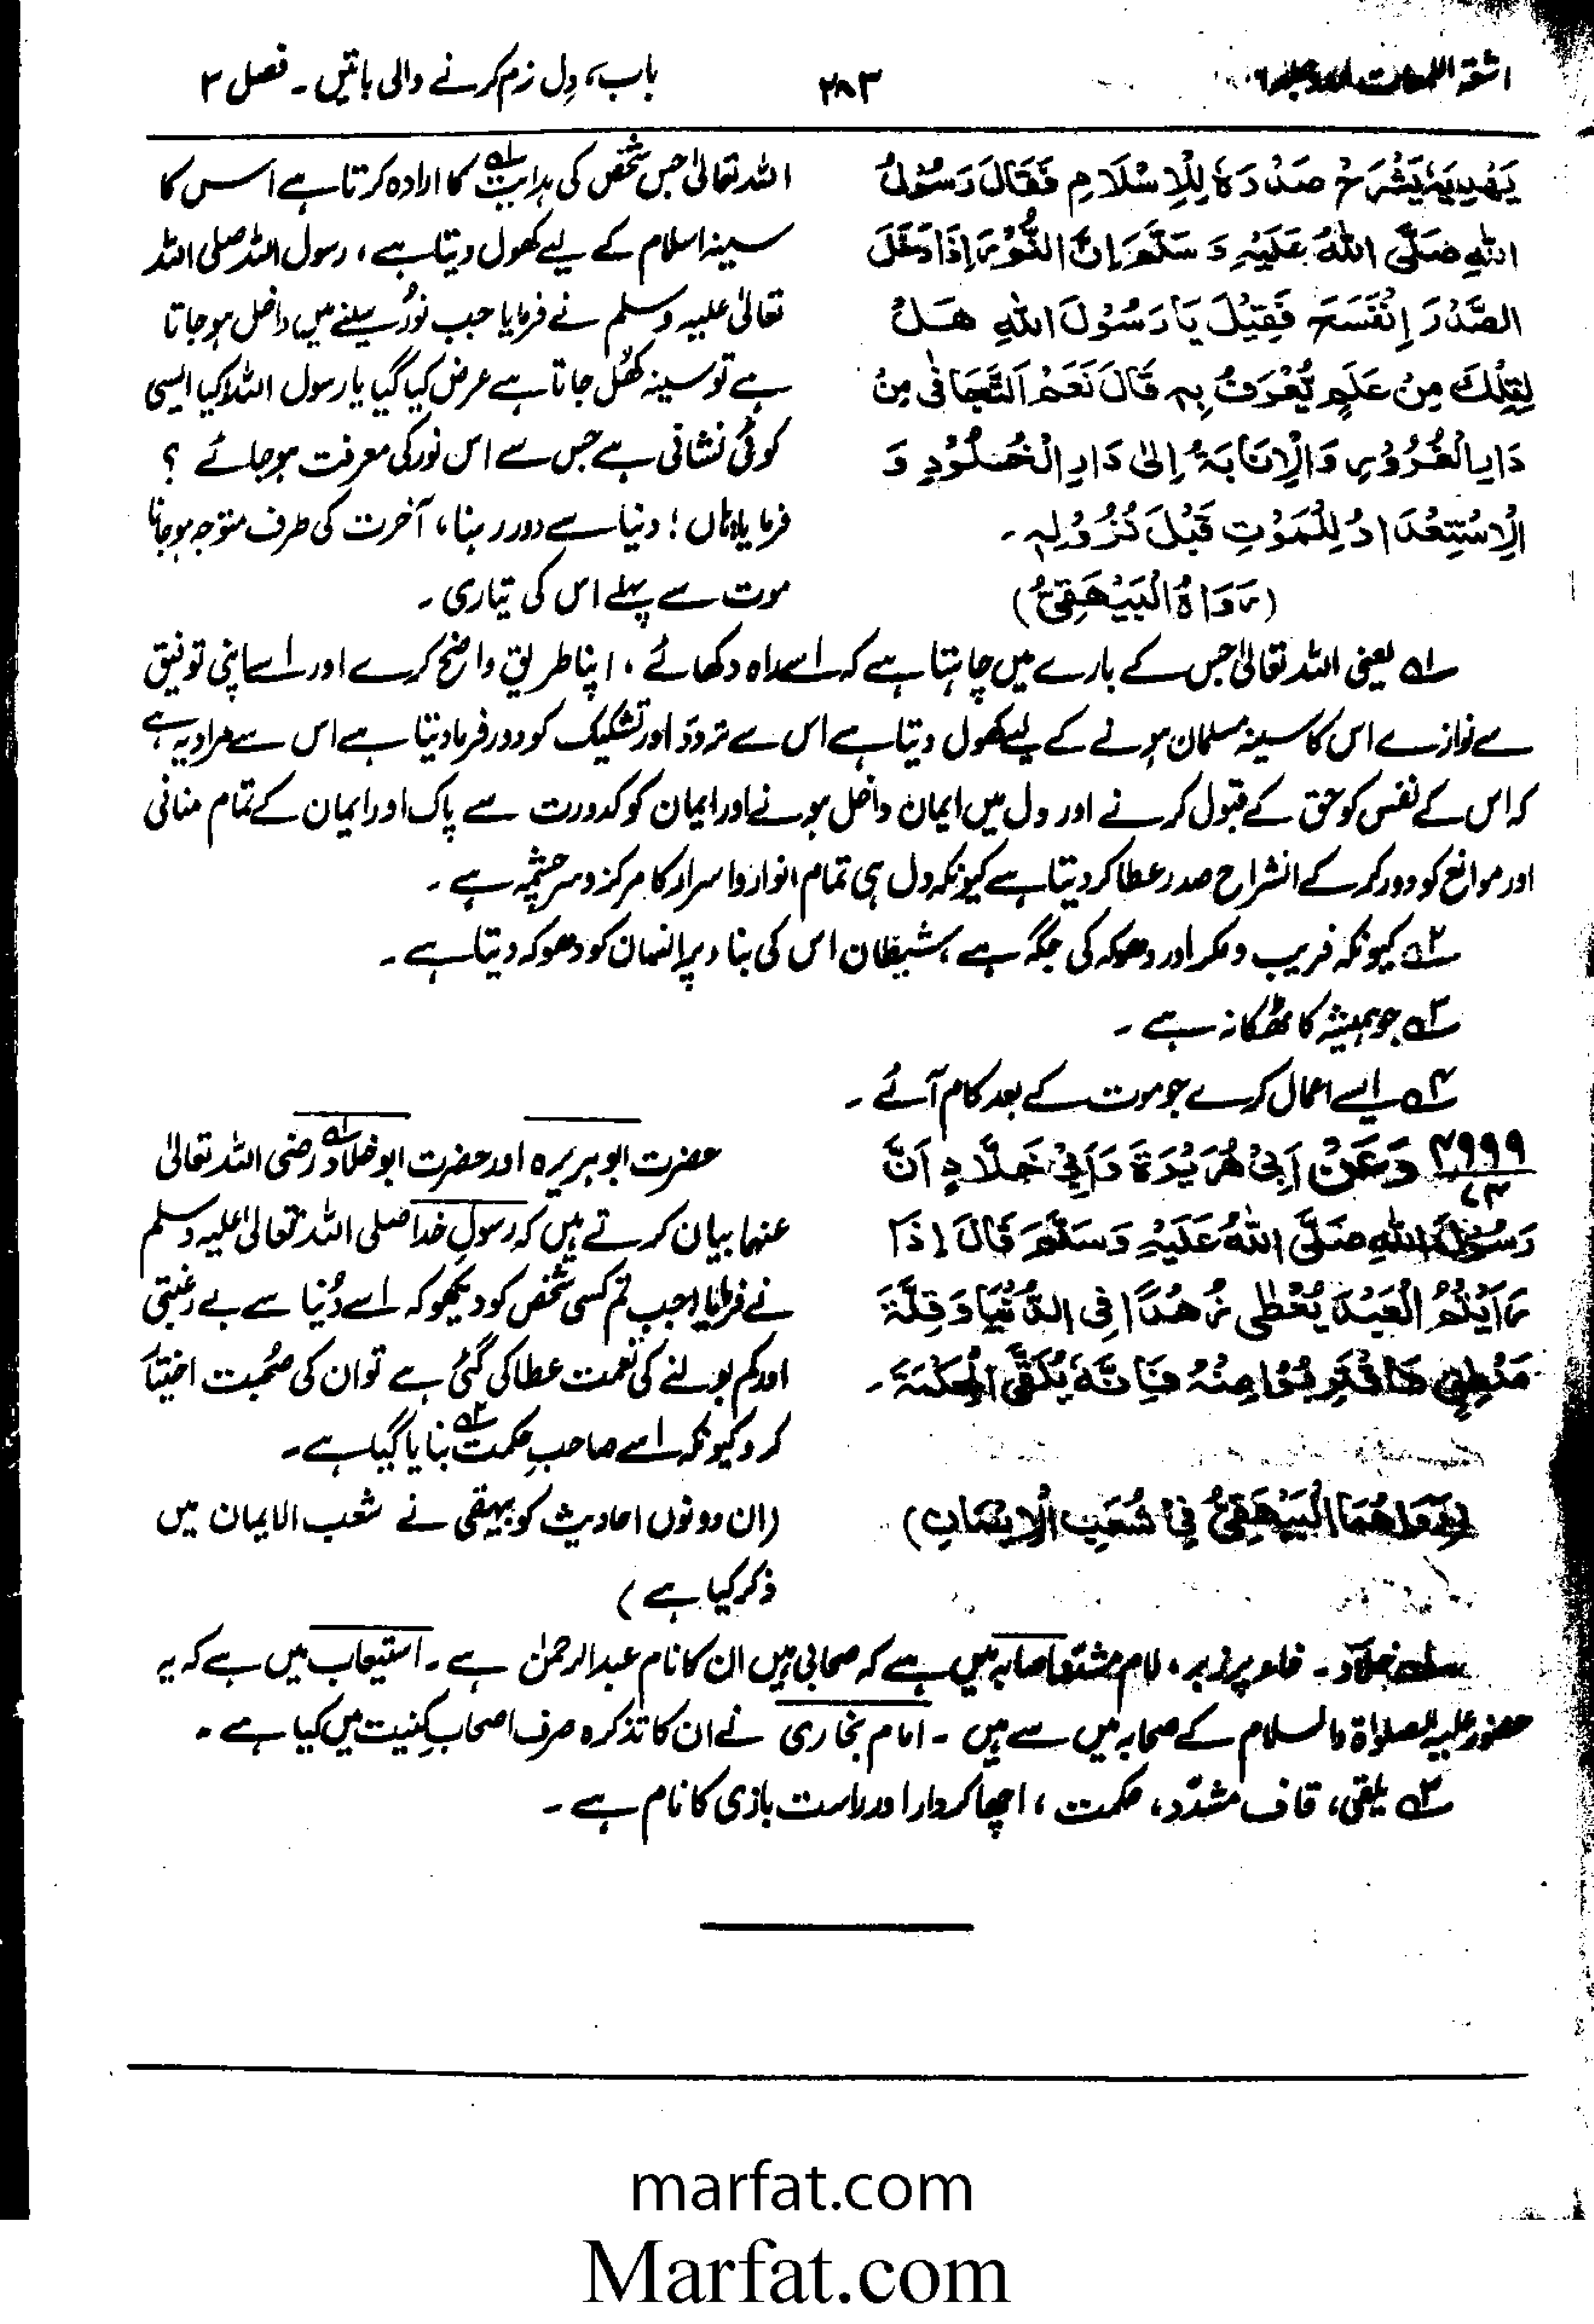 اشعۃ اللمعات اردو جلد ۶
۲۸۳
باب، دِل نرم کرنے والی باتیں۔ فصل ۳
یَھْدِیَہٗ یَشْرَحْ صَدْرَہٗ لِلْاِسْلَامِ فَقَالَ رَسُوْلُ
اللّٰہِ صَلَّی اللّٰہُ عَلَیْہِ وَ سَلَّمَ اِنَّ النُّوْرَ اِذَا دَخَلَ
الصَّدْرَ اِنْفَسَحَ فَقِیْلَ یَا رَسُوْلَ اللّٰہِ ھَلْ
لِتِلْکَ مِنْ عَلَمٍ یُّعْرَفُ بِہٖ قَالَ نَعَمْ اَلتَّجَافِیْ مِنْ
دَارِ الْغُرُوْرِ وَالْاِنَابَۃُ اِلٰی دَارِ الْخُلُوْدِ وَ
الْاِسْتِعْدَادُ لِلْمَوْتِ قَبْلَ نُزُوْلِہٖ۔
(رَوَاہُ الْبَیْھَقِیُّ)
اللہ تعالیٰ جس شخص کی ہدایت ۱ کا ارادہ کرتا ہے اس کا
سینہ اسلام کے لیے کھول دیتا ہے، رسول اللہ صلی اللہ
تعالیٰ علیہ وسلم نے فرمایا جب نُور سینے میں داخل ہو جاتا
ہے تو سینہ کھُل جاتا ہے عرض کیا گیا یا رسول اللہ! کیا ایسی
کوئی نشانی ہے جس سے اس نور کی معرفت ہو جائے ؟
فرمایا ہاں! دنیا سے دور رہنا، آخرت کی طرف متوجہ ہو جانا
موت سے پہلے اس کی تیاری۔
۱ یعنی اللہ تعالیٰ جس کے بارے میں چاہتا ہے کہ اسے راہ دکھائے، اپنا طریق واضح کرے اور اسے اپنی توفیق
سے نوازے اس کا سینہ مسلمان ہونے کے لیے کھول دیتا ہے اس سے تردد اور تشکیک کو دور فرما دیتا ہے اس سے مراد یہ ہے
کہ اس کے نفس کو حق کے قبول کرنے اور دل میں ایمان داخل ہونے اور ایمان کو کدورت سے پاک اور ایمان کے تمام منافی
اور موانع کو دور کر کے انشراح صدر عطا کر دیتا ہے کیونکہ دل ہی تمام انوار و اسرار کا مرکز و سرچشمہ ہے۔
۲ کیونکہ فریب و مکر اور دھوکہ کی جگہ ہے، شیطان اس کی بناء پر انسان کو دھوکہ دیتا ہے۔
۳ جو ہمیشہ کا ٹھکانہ ہے۔
۴ ایسے اعمال کرے جو موت کے بعد کام آئے۔
۴۹۹۹
۷۳
وَعَنْ اَبِیْ ھُرَیْرَۃَ وَاَبِیْ خَلَّادٍ اَنَّ
رَسُوْلَ اللّٰہِ صَلَّی اللّٰہُ عَلَیْہِ وَسَلَّمَ قَالَ اِذَا
رَاَیْتُمُ الْعَبْدَ یُعْطٰی زُھْدًا فِی الدُّنْیَا وَقِلَّۃَ
مَنْطِقٍ فَاقْتَرِبُوْا مِنْہُ فَاِنَّہٗ یُلَقَّی الْحِکْمَۃَ۔
رَوَاھُمَا الْبَیْھَقِیُّ فِیْ شُعَبِ الْاِیْمَانِ)
حضرت ابو ہریرہ اور حضرت ابو خلاد ۱ رضی اللہ تعالیٰ
عنہما بیان کرتے ہیں کہ رسولِ خدا صلی اللہ تعالیٰ علیہ وسلم
نے فرمایا جب تم کسی شخص کو دیکھو کہ اسے دُنیا سے بے رغبتی
اور کم بولنے کی نعمت عطا کی گئی ہے تو ان کی صُحبت اختیار
کرو کیونکہ اسے صاحبِ حکمت ۲ بنایا گیا ہے۔
(ان دونوں احادیث کو بیہقی نے شعب الایمان میں
ذکر کیا ہے)
۱ خلّاد۔ خاء پر زبر، لام مشدّد اصابہ میں ہے کہ صحابی ہیں ان کا نام عبدالرحمٰن ہے۔ استیعاب میں ہے کہ یہ
حضور علیہ الصلوٰۃ والسلام کے صحابہ میں سے ہیں۔ امام بخاری نے ان کا تذکرہ صرف اصحابِ کنیت میں کیا ہے۔
۲ یلقی، قاف مشدّد، حکمت، اچھا کردار اور راست بازی کا نام ہے۔
marfat.com
Marfat.com